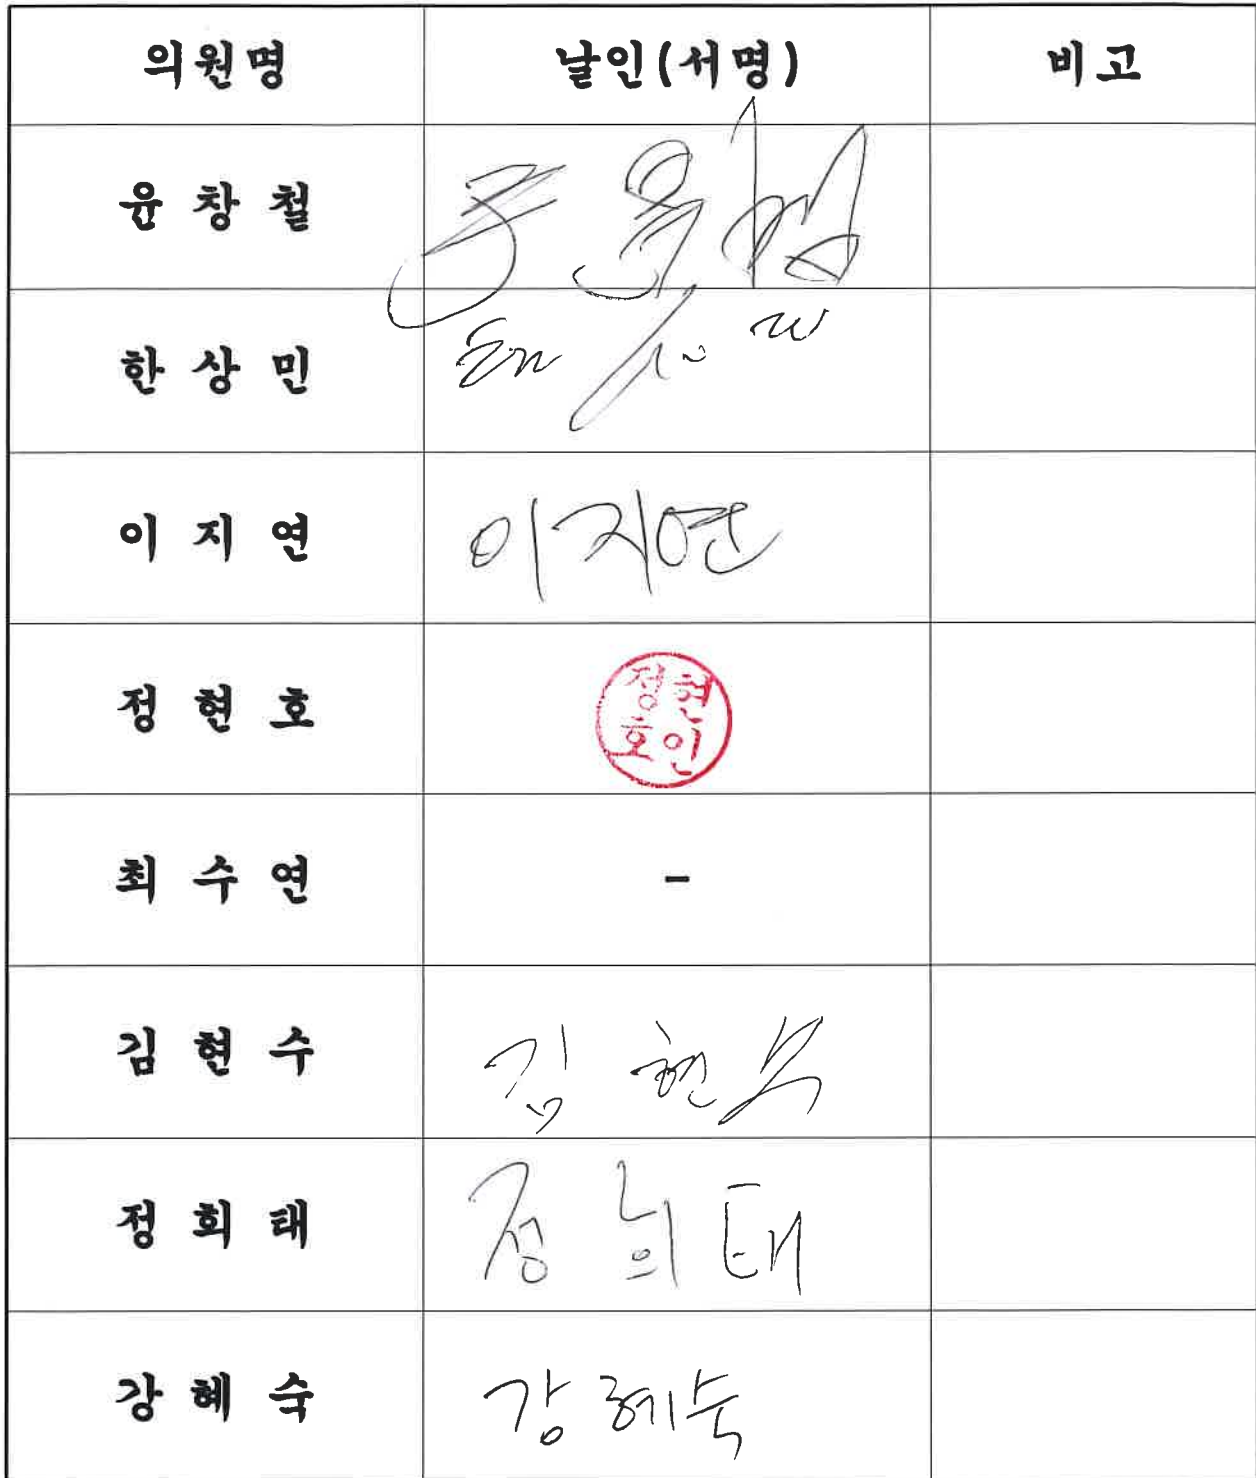 의원명 날인(서명) 비고
윤창철
한상민
이지연 이지연
정현호 정현
호인
최수연 -
김현수 김현수
정희태 정희태
강혜숙 강혜숙